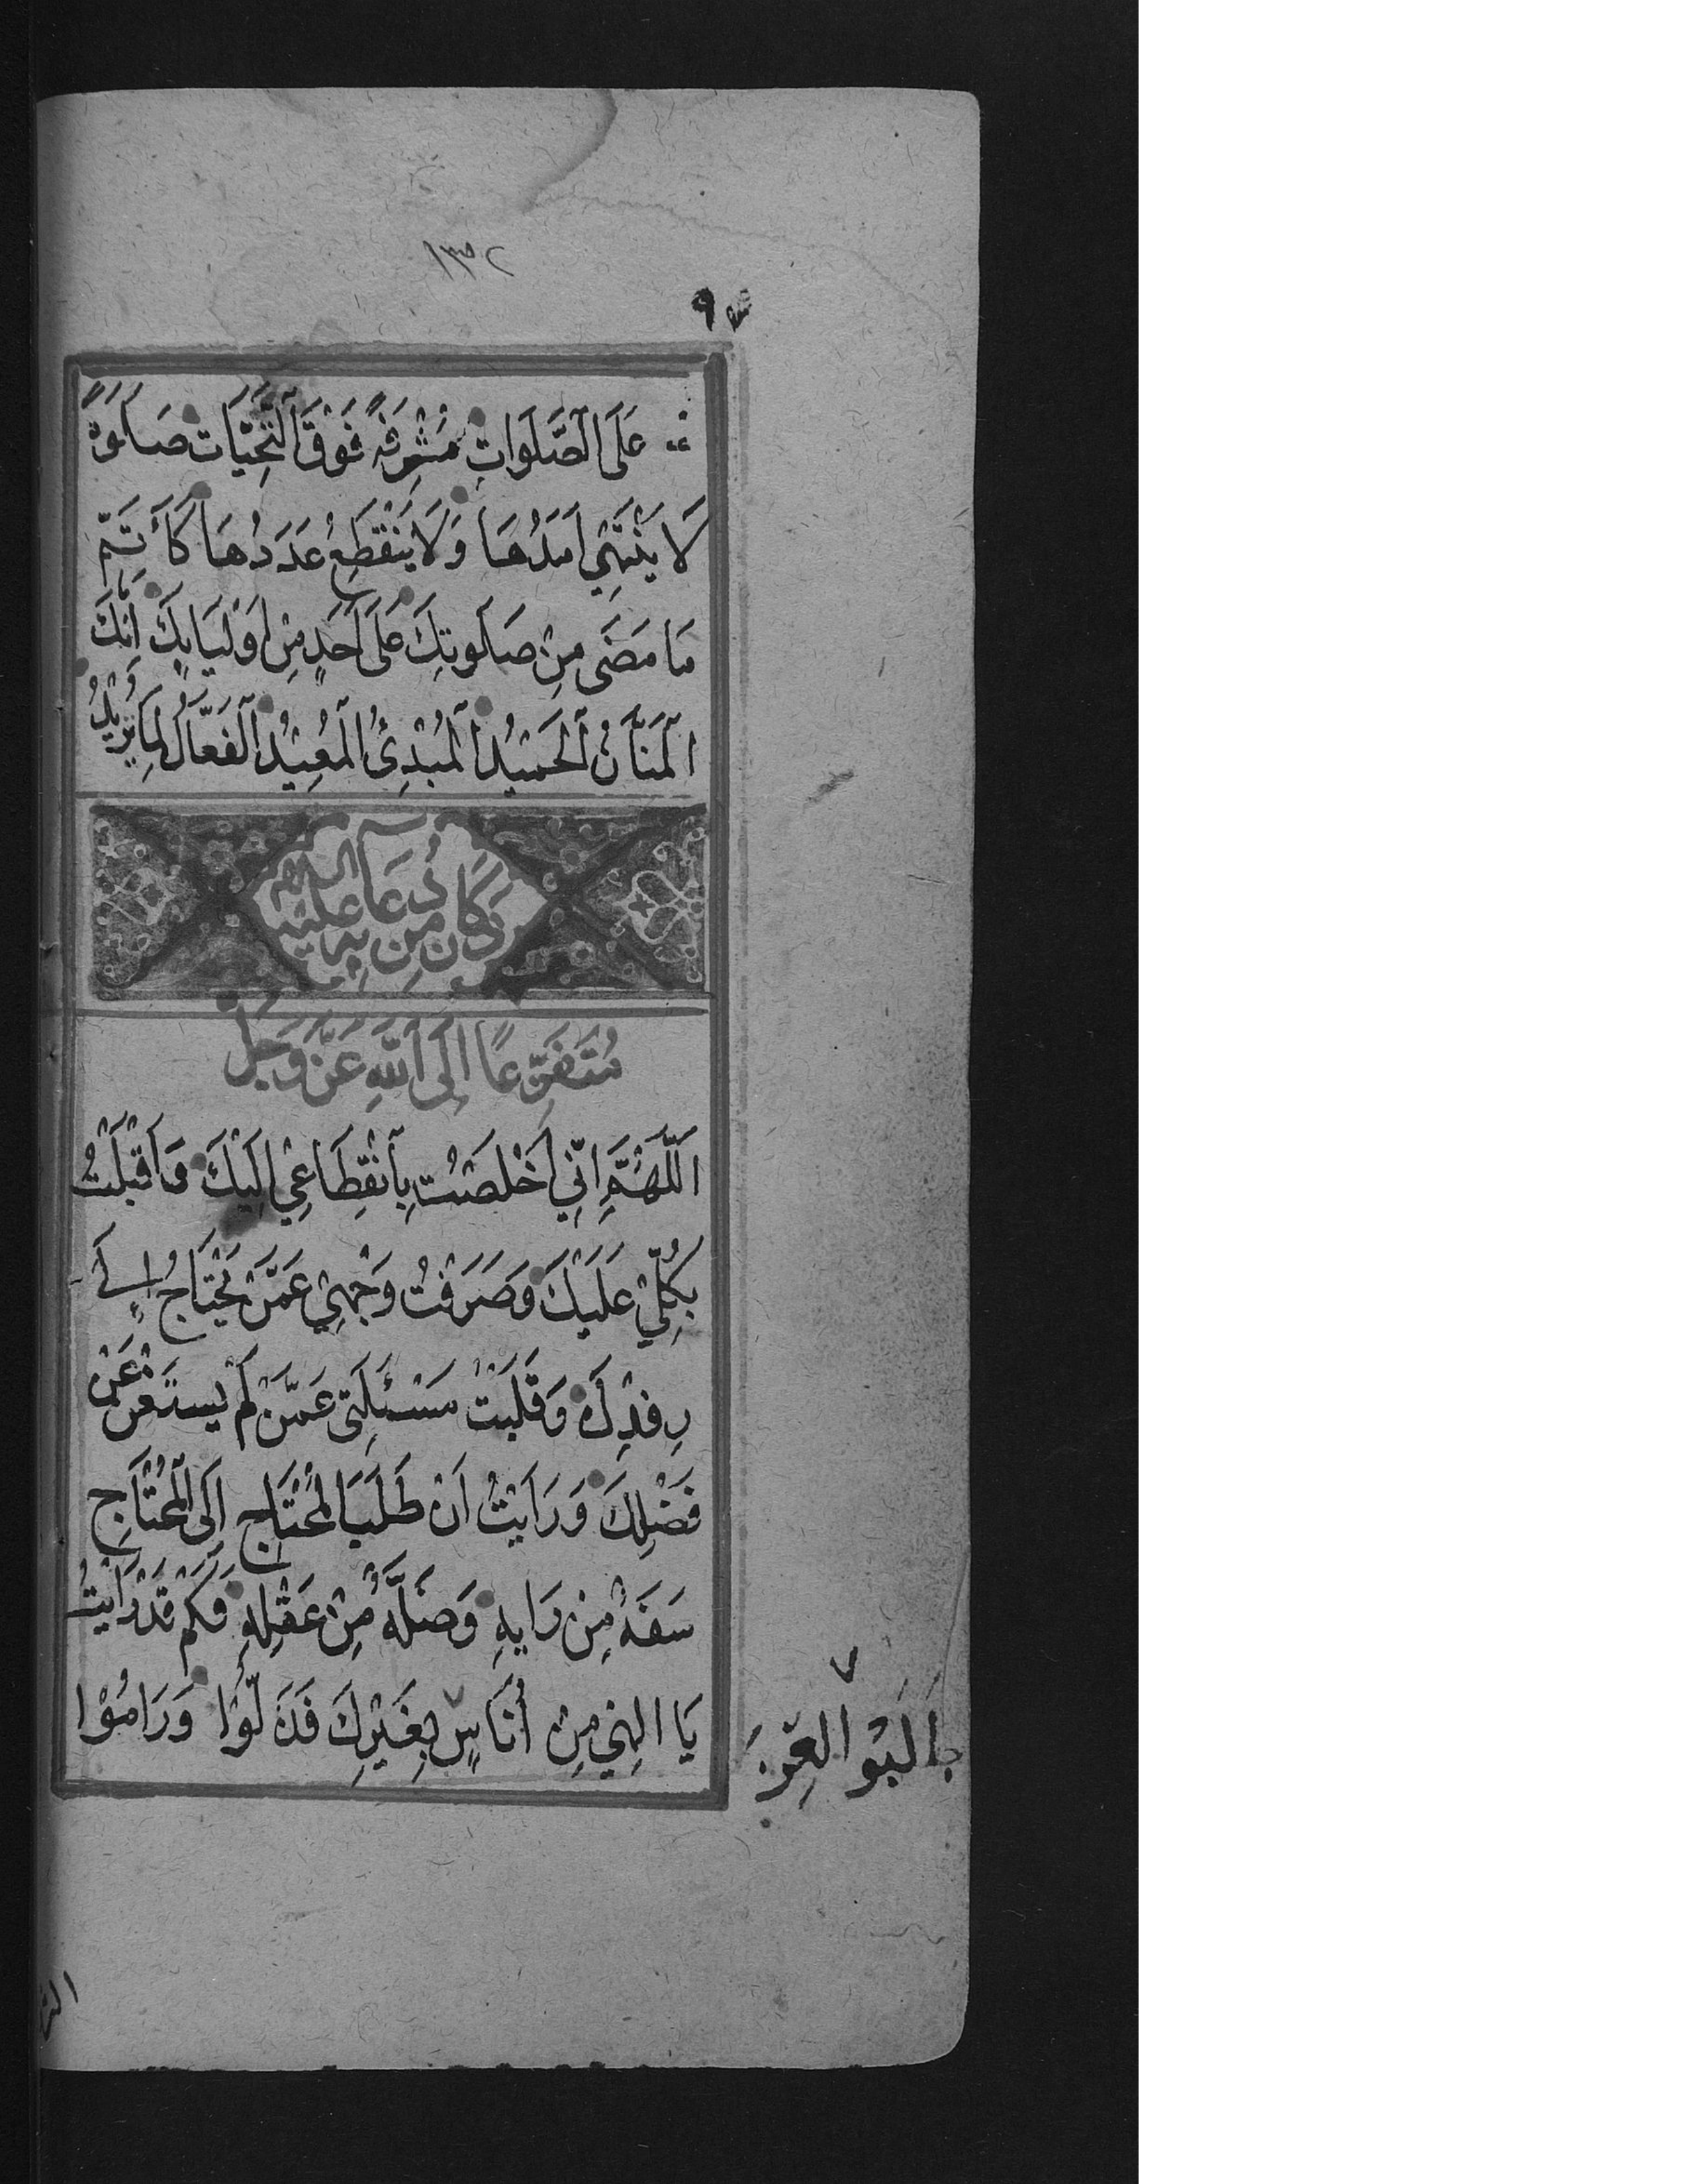 ١٣٥٢
٩
عَلَى الصَّلَوَاتِ مُشْرِفَةً فَوْقَ التَّحِيَّاتِ صَلٰوةً
لَا يَنْتَهِي اَمَدُهَا وَلَا يَنْقَطِعُ عَدَدُهَا كَاَتَمِّ
مَا مَضَى مِنْ صَلَوتِكَ عَلَى اَحَدٍ مِنْ اَوْلِيَائِكَ اِنَّكَ
الْمَنَّانُ الْحَمِيدُ الْمُبْدِئُ الْمُعِيْدُ الْفَعَّالُ لِمَا يُرِيْدُ
وَكَانَ مِنْ دُعَآئِهِ عَلَيْهِ السَّلَامُ
مُتَفَرِّعًا اِلَى اللّٰهِ عَزَّ وَجَلَّ
اَللّٰهُمَّ اِنِّي اَخْلَصْتُ بِانْقِطَاعِيْ اِلَيْكَ وَاَقْبَلْتُ
بِكُلِّيْ عَلَيْكَ وَصَرَفْتُ وَجْهِيْ عَمَّنْ يَحْتَاجُ اِلٰى
رِفْدِكَ وَقَلَبْتُ مَسْئَلَتِي عَمَّنْ لَمْ يَسْتَغْنِ عَنْ
فَضْلِكَ وَرَاَيْتُ اَنَّ طَلَبَ الْمُحْتَاجِ اِلَى الْمُحْتَاجِ
سَفَهٌ مِنْ رَايِهِ وَضَلَّةٌ مِنْ عَقْلِهِ فَكَمْ قَدْ رَاَيْتُ
يَا اِلٰهِيْ مِنْ اُنَاسٍ بِغَيْرِكَ فَذَلُّوْا وَرَامُوْا
طَلَبُوا الْعِزَّ